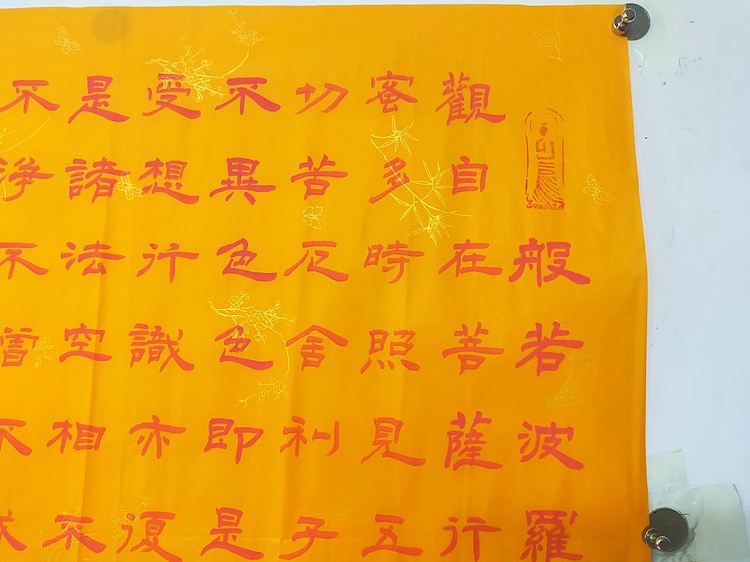 般若波羅
觀自在菩薩行
蜜多時照見五
切苦厄舍利子
不異色色即是
受想行識亦復
是諸法空相不
不淨不增不